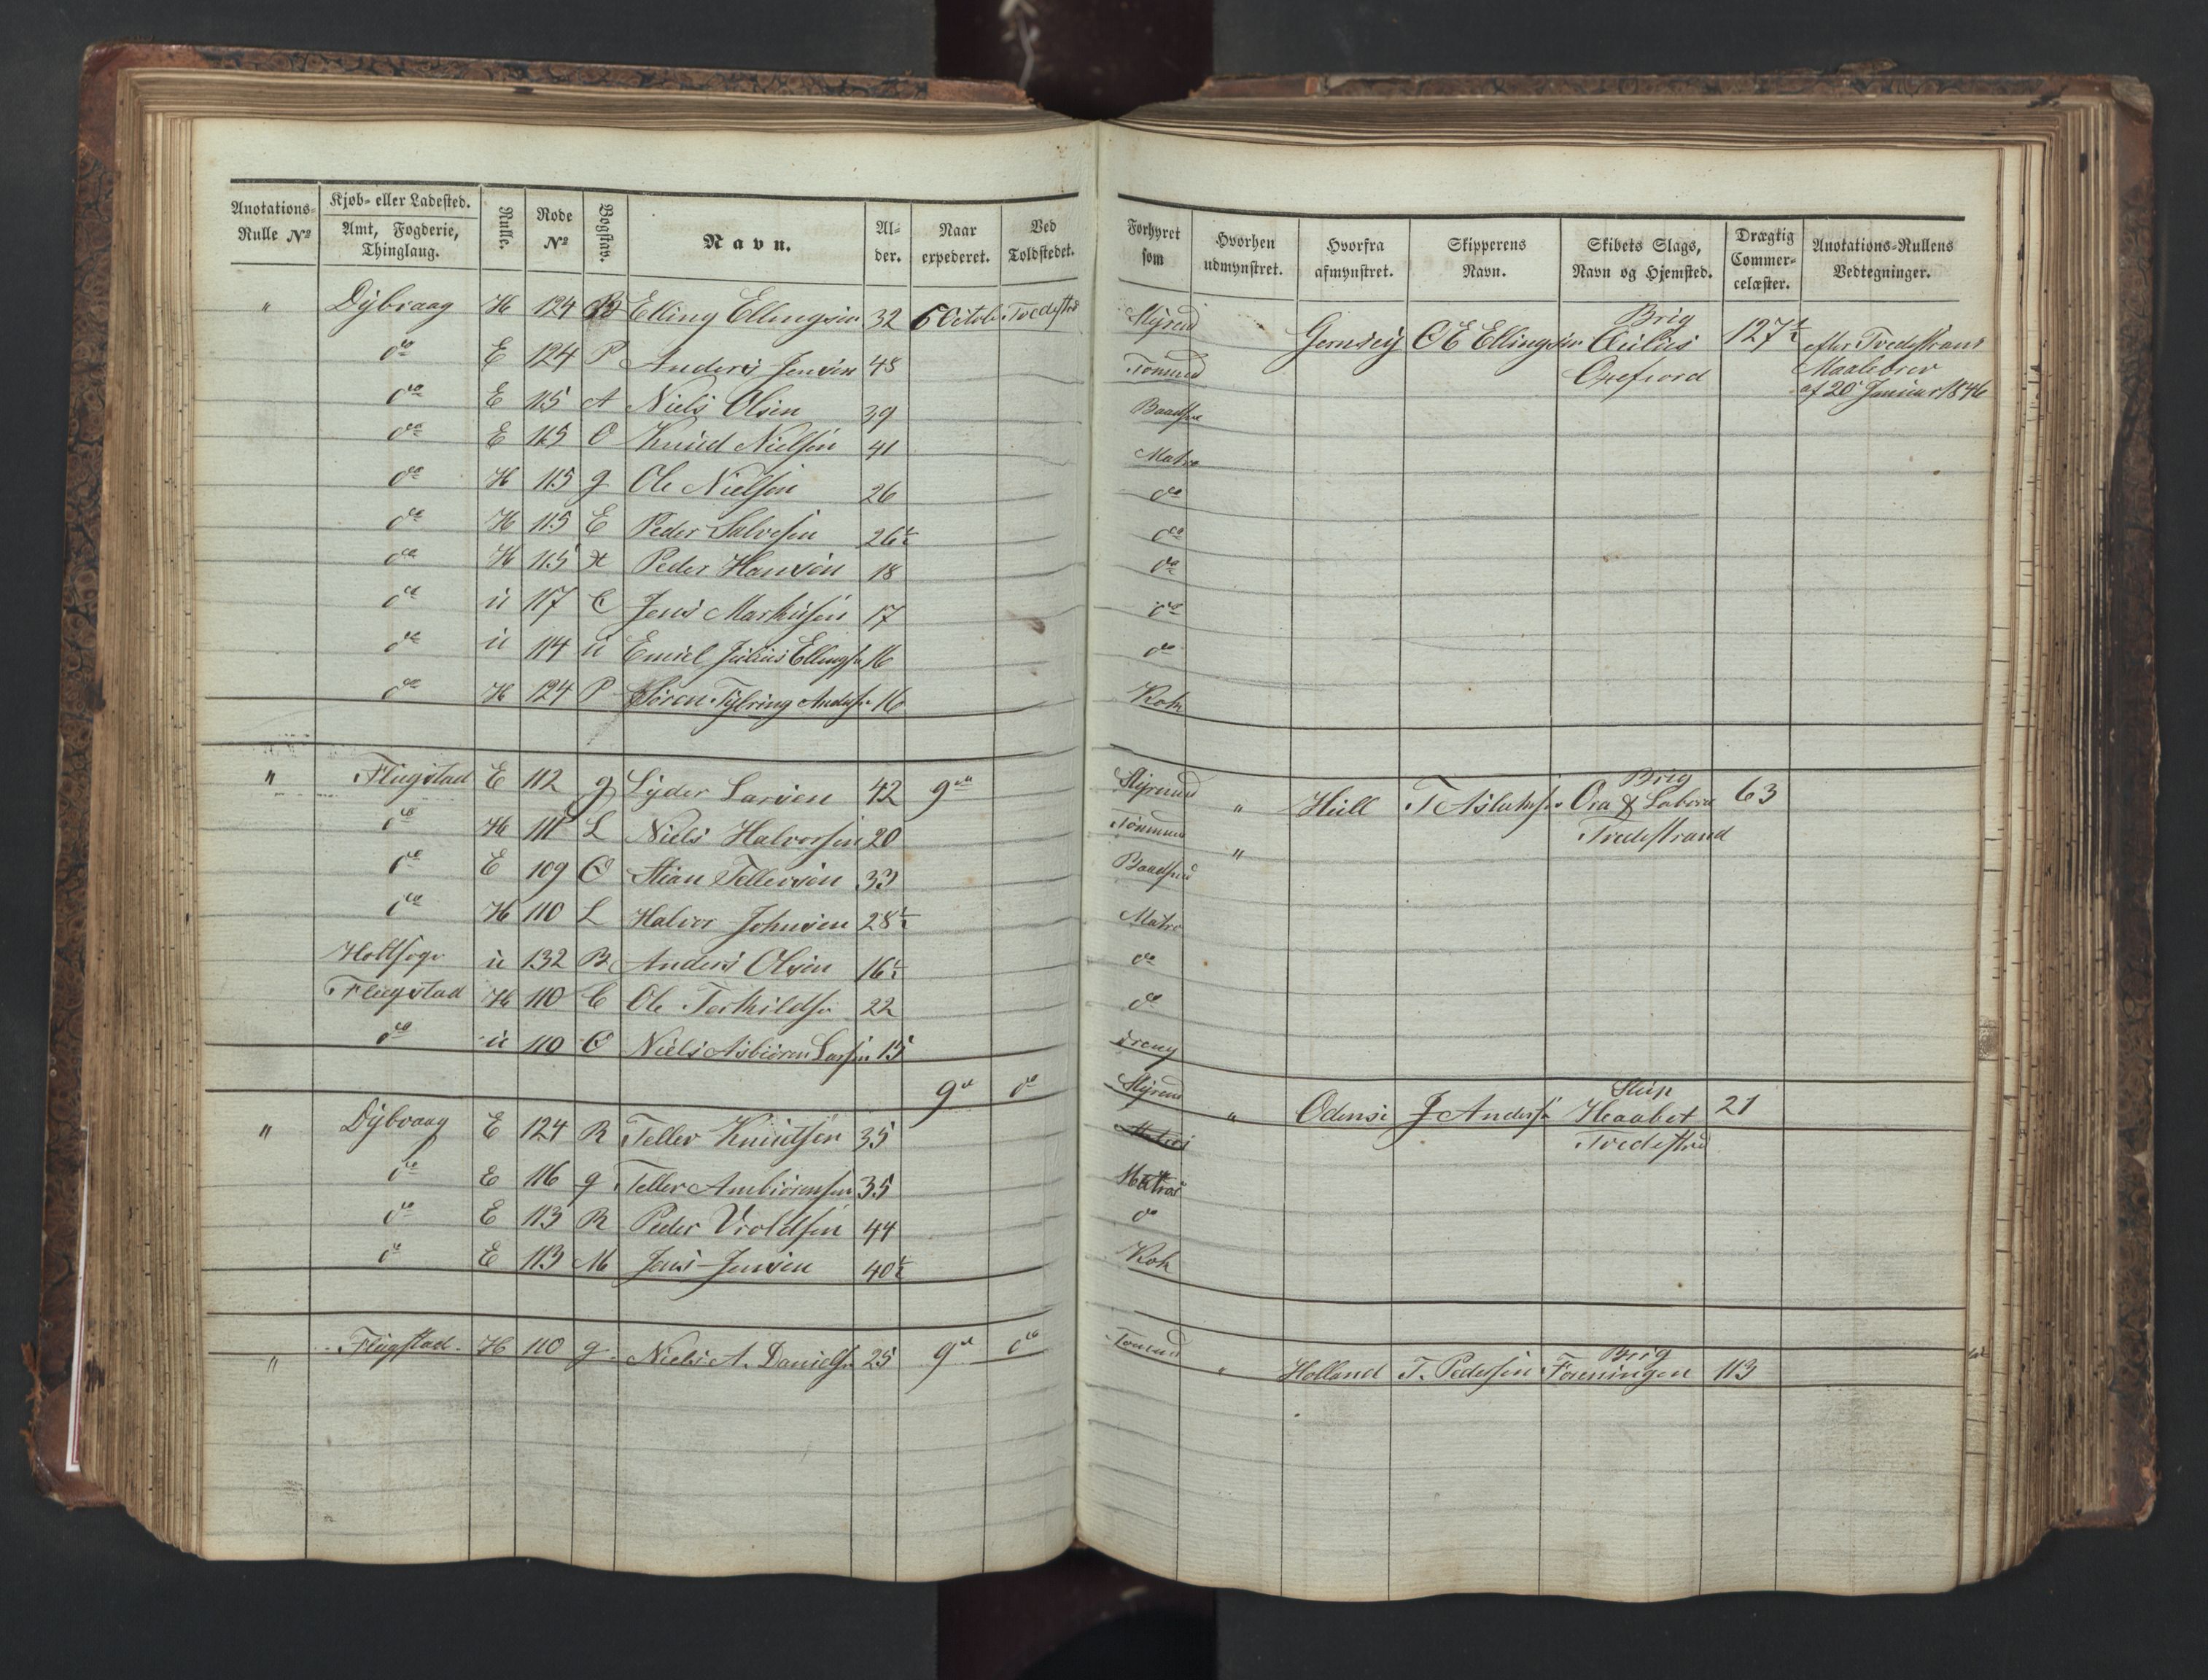 Anotations-Rulle № | Kjøb- eller Ladested. Amt, Fogderie, Thinglaug. | Rulle. | Rode № | Bogstav. | Navn. | Alder. | Naar expederet. | Ved Toldstedet. | Forhyret som | Hvorhen udmynstret. | Hvorfra afmynstret. | Skipperens Navn. | Skibets Slags, Navn og Hjemsted. | Drægtig Commercelæster. | Anotations-Rullens Vedtegninger.
" Dybvaag H 124 B Elling Ellingsen 32 6 Octob Tvedestrd Styrmd Gernsey O E Ellingsen Brig 127½ efter Tvedestrand
do E 124 P Anders Jensen 48 Tømmd Maalebrev
do E 115 A Niels Olsen 39 Baadsm af 20 Januar 1846
do E 115 O Knud Nielsen 41 Matro
do H 115 g Ole Nielsen 26 do
do H 115 E Peder Salvesen 26½ do
do H 115 Peder Hansen 18 do
do u 117 C Jens Markusen 17 do
do u 114 u Emiel Julius Ellingsn 16 do
do H 124 P Søren Andersn 16 Kok
" Flugstad E 112 g Lyder Larsen 42 9de Styrmand " Hull T Aslaksn Brig Ora & Labora Tvedestrand 63
do H 111 L Niels Halvorsen 20 Tømmm "
do E 109 O Stian Tellevsen 33 Baadsmd
do H 110 L Halvor Johnsen 28½ Matro
Holtsogn u 132 B Anders Olsen 16½ do
Flugstad H 110 C Ole Torkildsn 22 do
do u 110 O Niels Asbiøren Larsen 15 Dreng
" Dybvaag E 124 R Teller Knudsen 35 9de do Styrmd " Odense J Andersn Slup Haabet Tvedestrd 21
do E 116 g Teller Ambiørensen 35 Matros
do E 113 R Peder Vroldsen 44 do
do E 113 M Jens Jensen 40½ Kok
" Flugstad H 110 g Niels A. Danielsn 25 9de do Tømmd " Holland T. Pedersen Brig Foreningen 113